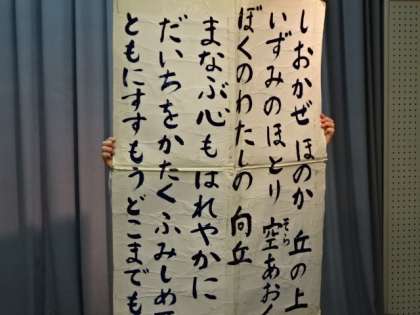 しおかぜ ほのか 丘の上
いずみのほとり 空あおく
そら
ぼくのわたしの 向丘
まなぶ心も はれやかに
だいちをかたく ふみしめて
ともにすすもう どこまでも